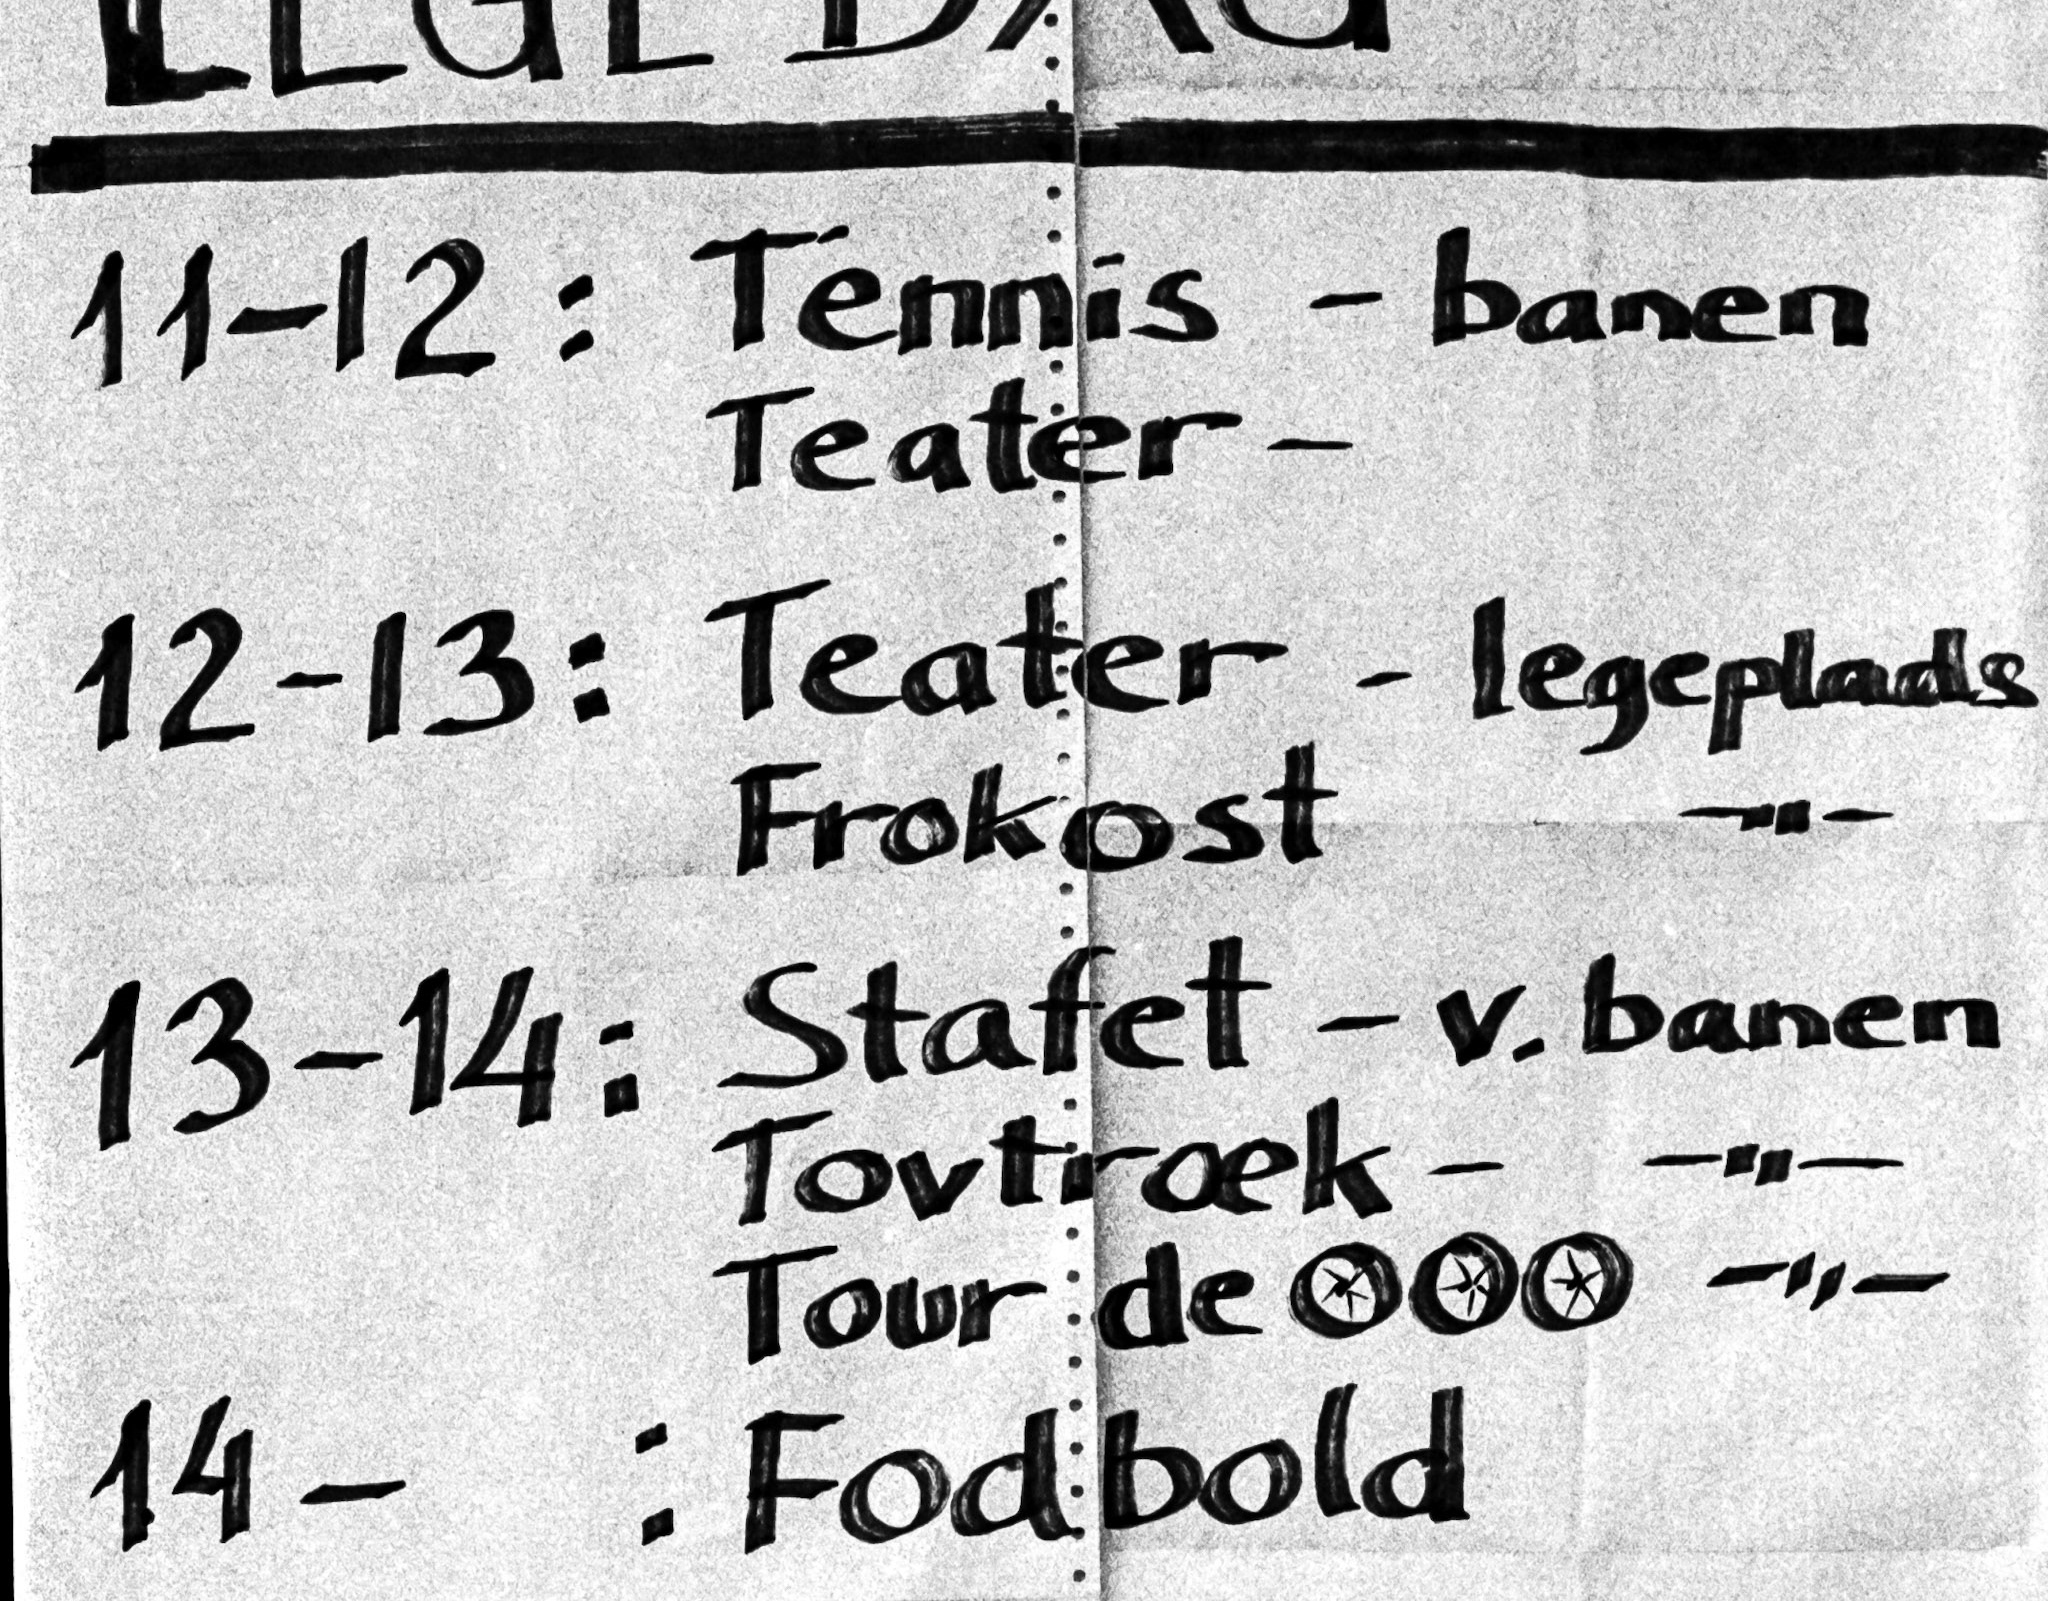 LEGE DAG
11-12 : Tennis - banen
Teater -
12-13: Teater - legeplads
Frokost -"-
13-14: Stafet - v. banen
Tovtræk - -"-
Tour de -"-
14- : Fodbold